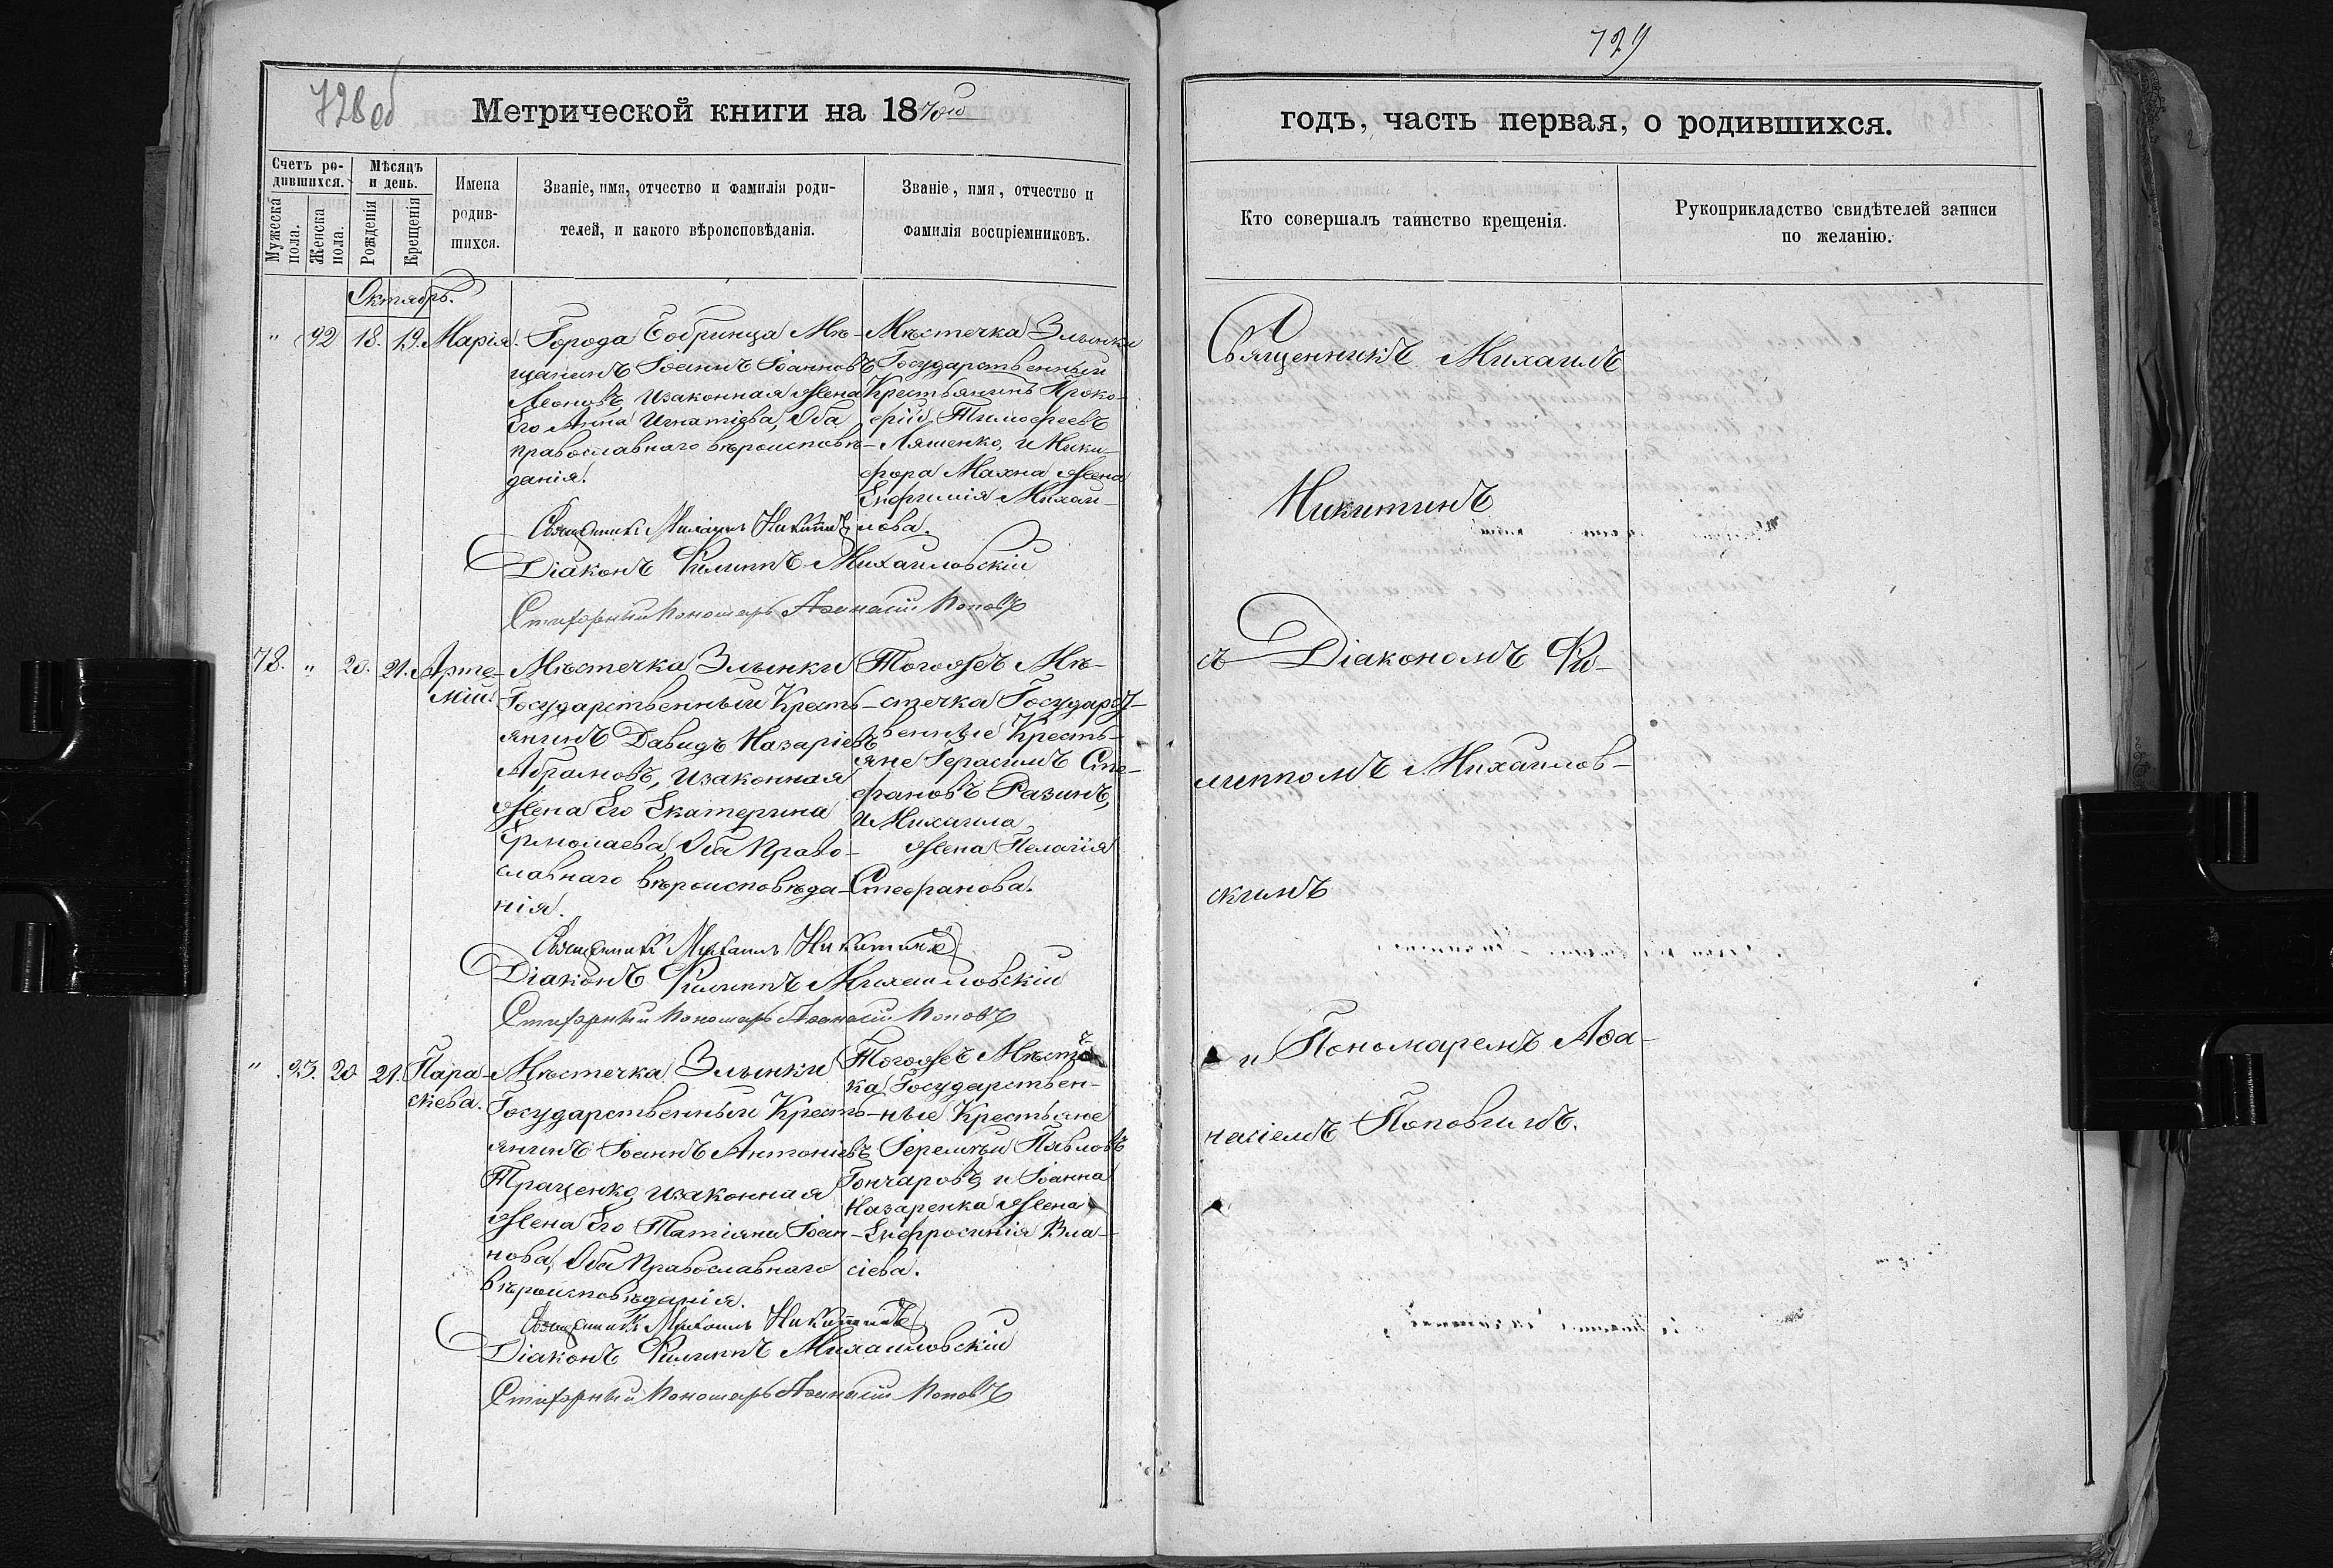 728об
Метрической книги на 1870ый
Счетъ ро-
дившихся.
Мѣсяцъ
и день.
Мужеска
пола.
Женска
пола.
Рожденія
Крещенія
Имена
родив-
шихся.
Званіе, имя, отчество и фамилія роди-
телей, и какого вѣроисповѣданія.
Званіе, имя, отчество и
фамилія воспріемниковъ.
Октябрь.
" 92 18. 19. Марія.
Города Бобринца Мѣ-
щанинъ Іоаннъ Іоанновъ
Леоновъ, изаконная жена
Его Анна Игнатіева, Оба
православнаго вѣроисповѣ-
данія.
Мѣстечка Злынки
Государственный
Крестьянинъ Проко-
фій Тимофеевъ
Ляшенко, и Ники-
фора Махна жена
Евфимія Михаи-
лова.
Священникъ Михаилъ Никитинъ
Діаконъ Филиппъ Михаиловскій
Пономарь Аѳанасій Поповъ
78. " 20. 21. Арте-
мій.
Мѣстечка Злынки
Государственный Кресть-
янинъ Давидъ Назаріевъ
Абрамовъ, изаконная
жена Его Екатерина
Ермолаева, Оба Право-
славнаго вѣроисповѣда-
нія.
Тогожъ Мѣ-
стечка Государст-
венные Кресть-
яне Герасимъ Сте-
фановъ Разинъ,
и Михаила
жена Пелагія
Стефанова.
Священникъ Михаилъ Никитинъ
Діаконъ Филиппъ Михаиловскій
Пономарь Аѳанасій Поповъ
" 93. 20 21. Пара-
скева.
Мѣстечка Злынки
Государственный Кресть-
янинъ Іоаннъ Антоніевъ
Траценко, изаконная
жена Его Татіяна Іоан-
нова, Оба Православнаго
вѣроисповѣданія.
Тогожъ Мѣсте-
ка Государствен-
ные Крестьяне
Іеремѣй Павловъ
Гончаровъ, и Іоанна
Назаренка жена
Евфросинія Вла-
сіева.
Священникъ Михаилъ Никитинъ
Діаконъ Филиппъ Михаиловскій
Пономарь Аѳанасій Поповъ
729
годъ, часть первая, о родившихся.
Кто совершалъ таинство крещенія.
Рукоприкладство свидѣтелей записи
по желанію.
Священникъ Михаилъ
Никитинъ
съ Діакономъ Фи-
липпомъ Михаилов-
скимъ
и Пономаремъ Аѳа-
насіемъ Поповымъ.